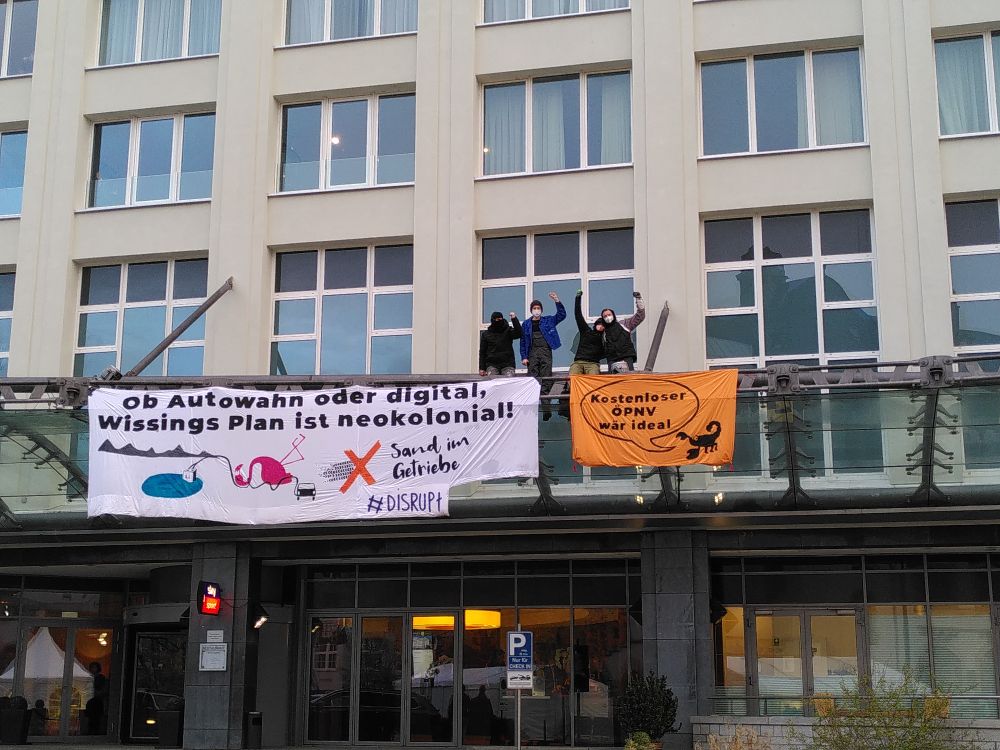 Ob Autowahn oder digital,
Wissings Plan ist neokolonial!
Sand im
Getriebe
#DISRUPt
Kostenloser
ÖPNV
wär ideal
sky
sport
P
Nur für
CHECK IN